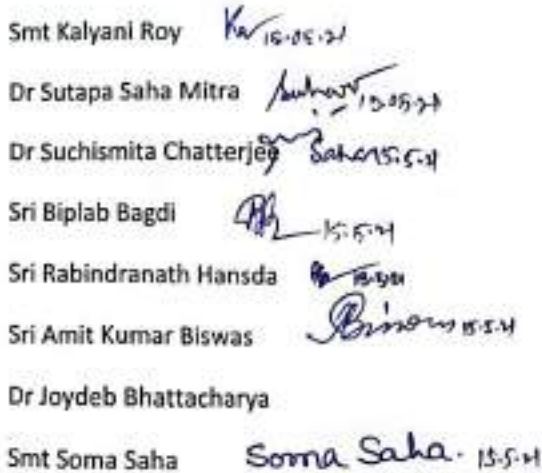 Smt Kalyani Roy 15.05.21
Dr Sutapa Saha Mitra 15.05.21
Dr Suchismita Chatterjee 15.5.21
Sri Biplab Bagdi 15.5.21
Sri Rabindranath Hansda
Sri Amit Kumar Biswas Biswas 15.5.21
Dr Joydeb Bhattacharya
Smt Soma Saha Soma Saha. 15.5.21